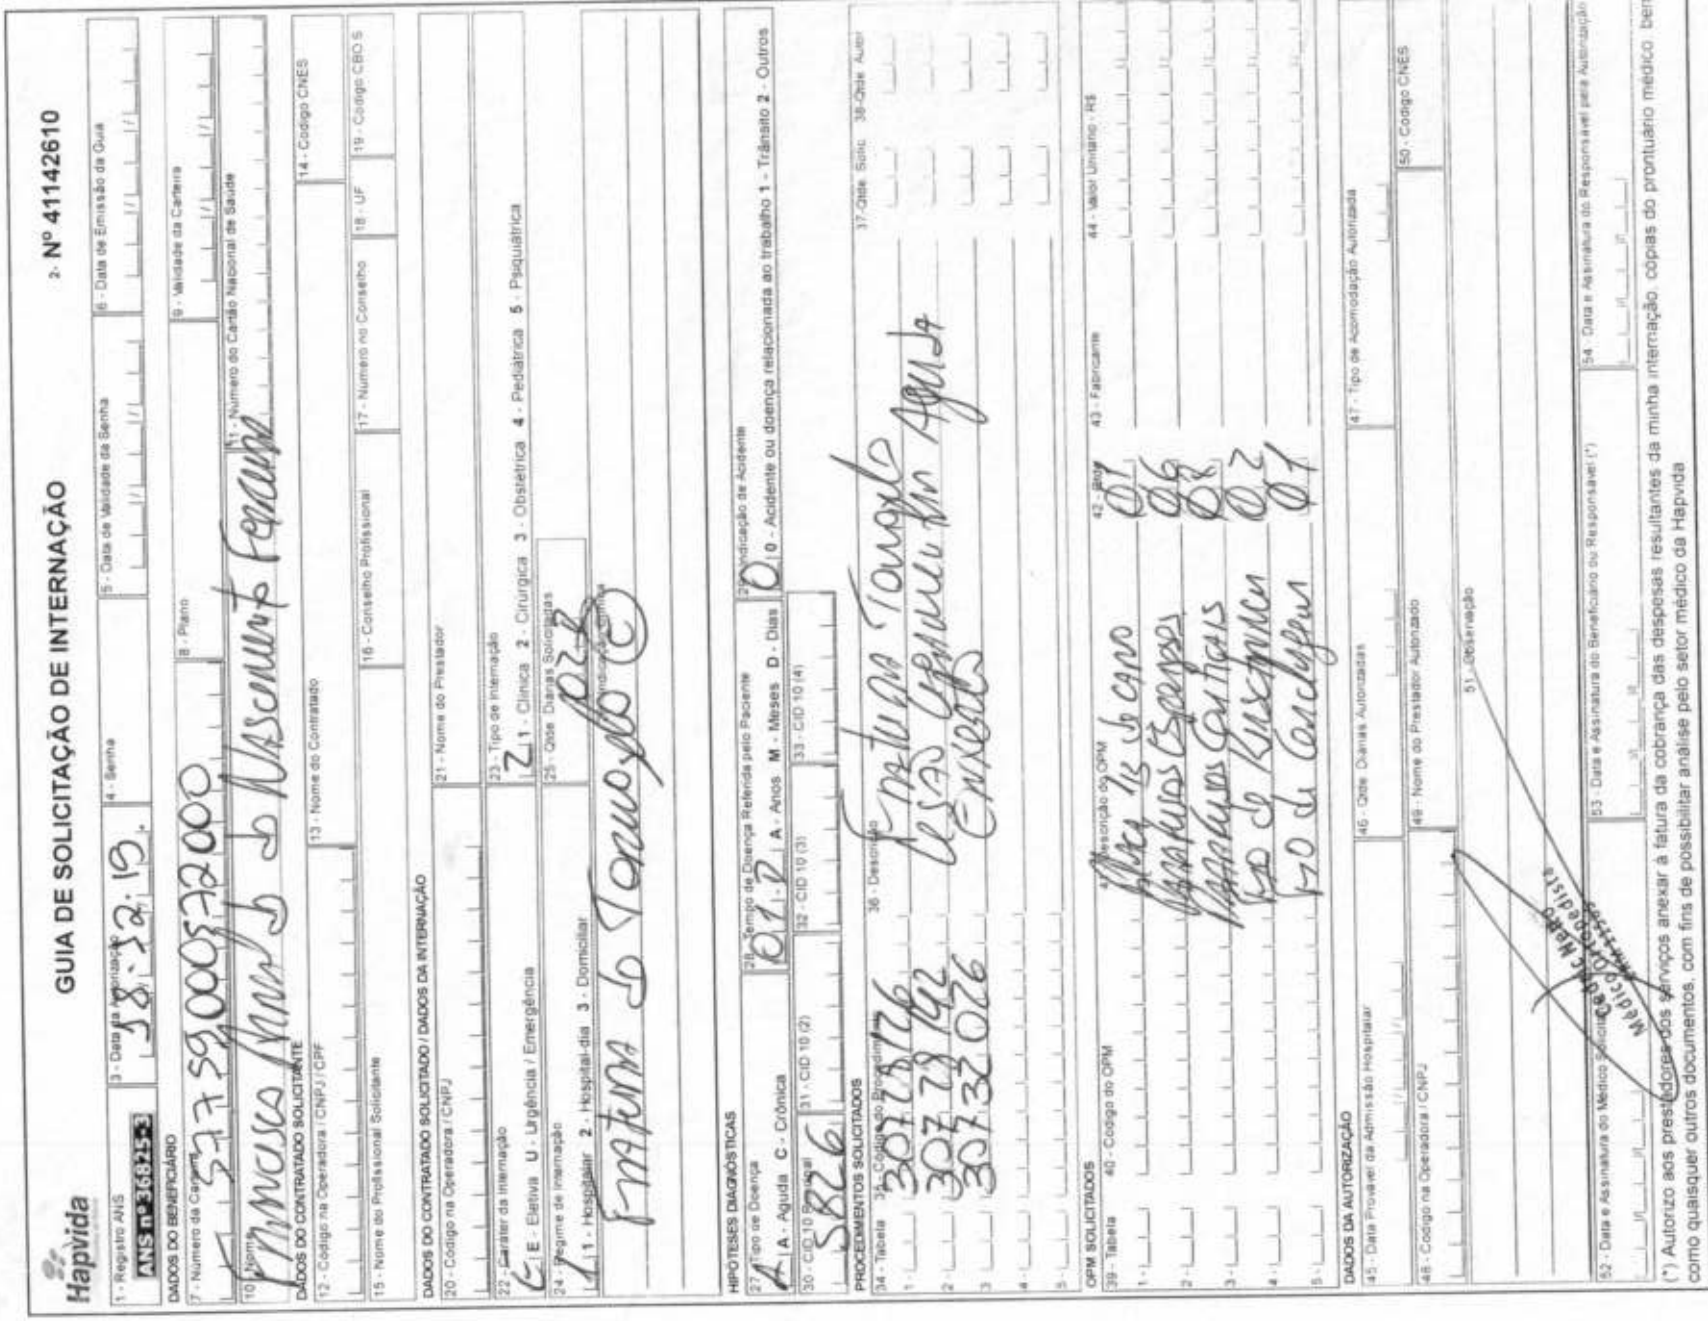 Hapvida
GUIA DE SOLICITAÇÃO DE INTERNAÇÃO
2- Nº 41142610
1 - Registro ANS
ANS nº 36825-3
3 - Data da Autorização
18.12.19
4 - Senha
5 - Data de Validade da Senha
6 - Data de Emissão da Guia
DADOS DO BENEFICIÁRIO
7 - Número da Carteira
8 - Plano
9 - Validade da Carteira
10 - Nome
do Nascimento
11 - Número do Cartão Nacional de Saúde
DADOS DO CONTRATADO SOLICITANTE
12 - Código na Operadora / CNPJ / CPF
13 - Nome do Contratado
14 - Codigo CNES
15 - Nome do Profissional Solicitante
16 - Conselho Profissional
17 - Número no Conselho
18 - UF
19 - Codigo CBO S
DADOS DO CONTRATADO SOLICITADO / DADOS DA INTERNAÇÃO
20 - Código na Operadora / CNPJ
21 - Nome do Prestador
22 - Caráter da Internação
E - Eletiva U - Urgência / Emergência
23 - Tipo de Internação
2 1 - Clínica 2 - Cirúrgica 3 - Obstétrica 4 - Pediátrica 5 - Psiquiátrica
24 - Regime de Internação
1 1 - Hospitalar 2 - Hospital-dia 3 - Domiciliar
25 - Qtde Diárias Solicitadas
Fratura do Tornozelo (C)
HIPÓTESES DIAGNÓSTICAS
27 - Tipo de Doença
A A - Aguda C - Crônica
28 - Tempo de Doença Referida pelo Paciente
01 - D A - Anos M - Meses D - Dias
29 - Indicação de Acidente
0 0 - Acidente ou doença relacionada ao trabalho 1 - Trânsito 2 - Outros
30 - CID 10 Principal
S826
31 - CID 10 (2)
32 - CID 10 (3)
33 - CID 10 (4)
PROCEDIMENTOS SOLICITADOS
34 - Tabela
35 - Código do Procedimento
36 - Descrição
37 - Qtde Solic
38 - Qtde Autor
1 - Fratura Tornozelo
2 - Lesão Ligamentar Aguda
3 - 30732026 Enxerto
4 -
5 -
OPM SOLICITADOS
39 - Tabela
40 - Codigo do OPM
41 - Descrição do OPM
42 - Qtde
43 - Fabricante
44 - Valor Unitário - R$
1 - Placa 1/3 de cano 01
2 - Parafusos Esponjosos 06
3 - Parafusos Corticais 08
4 - Fio de Kirschner 02
5 - Fio de 01
DADOS DA AUTORIZAÇÃO
45 - Data Provavel da Admissão Hospitalar
46 - Qtde Diárias Autorizadas
47 - Tipo de Acomodação Autorizada
48 - Codigo na Operadora / CNPJ
49 - Nome do Prestador Autorizado
50 - Codigo CNES
51 - Observação
Médico Ortopedista
52 - Data e Assinatura do Médico Solicitante
53 - Data e Assinatura do Beneficiário ou Responsável (*)
54 - Data e Assinatura do Responsável pela Autorização
(*) Autorizo aos prestadores dos serviços anexar à fatura da cobrança das despesas resultantes da minha internação, cópias do prontuário médico bem
como quaisquer outros documentos, com fins de possibilitar análise pelo setor médico da Hapvida